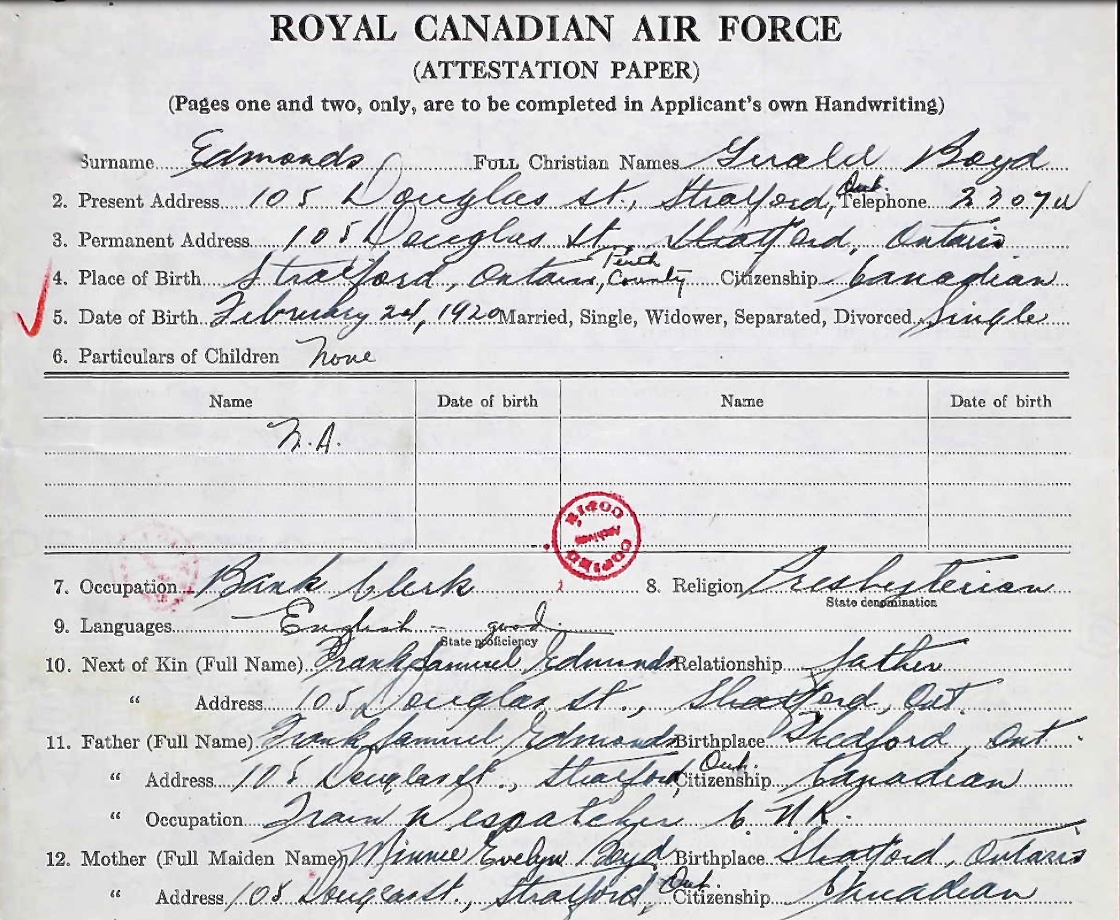 ROYAL CANADIAN AIR FORCE
(ATTESTATION PAPER)
(Pages one and two, only, are to be completed in Applicant's own Handwriting)
Surname Edmonds FULL Christian Names Gerald Boyd
2. Present Address 105 Douglas st., Stratford, Ont. Telephone 2307W
3. Permanent Address 105 Douglas st., Stratford, Ontario
4. Place of Birth Stratford, Ontario, Perth County Citizenship Canadian
5. Date of Birth February 24, 1920 Married, Single, Widower, Separated, Divorced Single
6. Particulars of Children None
Name Date of birth Name Date of birth
N.A.
COPIED Archives COPIÉ
7. Occupation Bank Clerk 8. Religion Presbyterian
State denomination
9. Languages English - good
State proficiency
10. Next of Kin (Full Name) Frank Samuel Edmonds Relationship father
" Address 105 Douglas st., Stratford, Ont.
11. Father (Full Name) Frank Samuel Edmonds Birthplace Thedford, Ont.
" Address 105 Douglas st., Stratford, Ont. Citizenship Canadian
" Occupation Train Despatcher C.N.R.
12. Mother (Full Maiden Name) Minnie Evelyn Boyd Birthplace Stratford, Ontario
" Address 105 Douglas st., Stratford, Ont. Citizenship Canadian